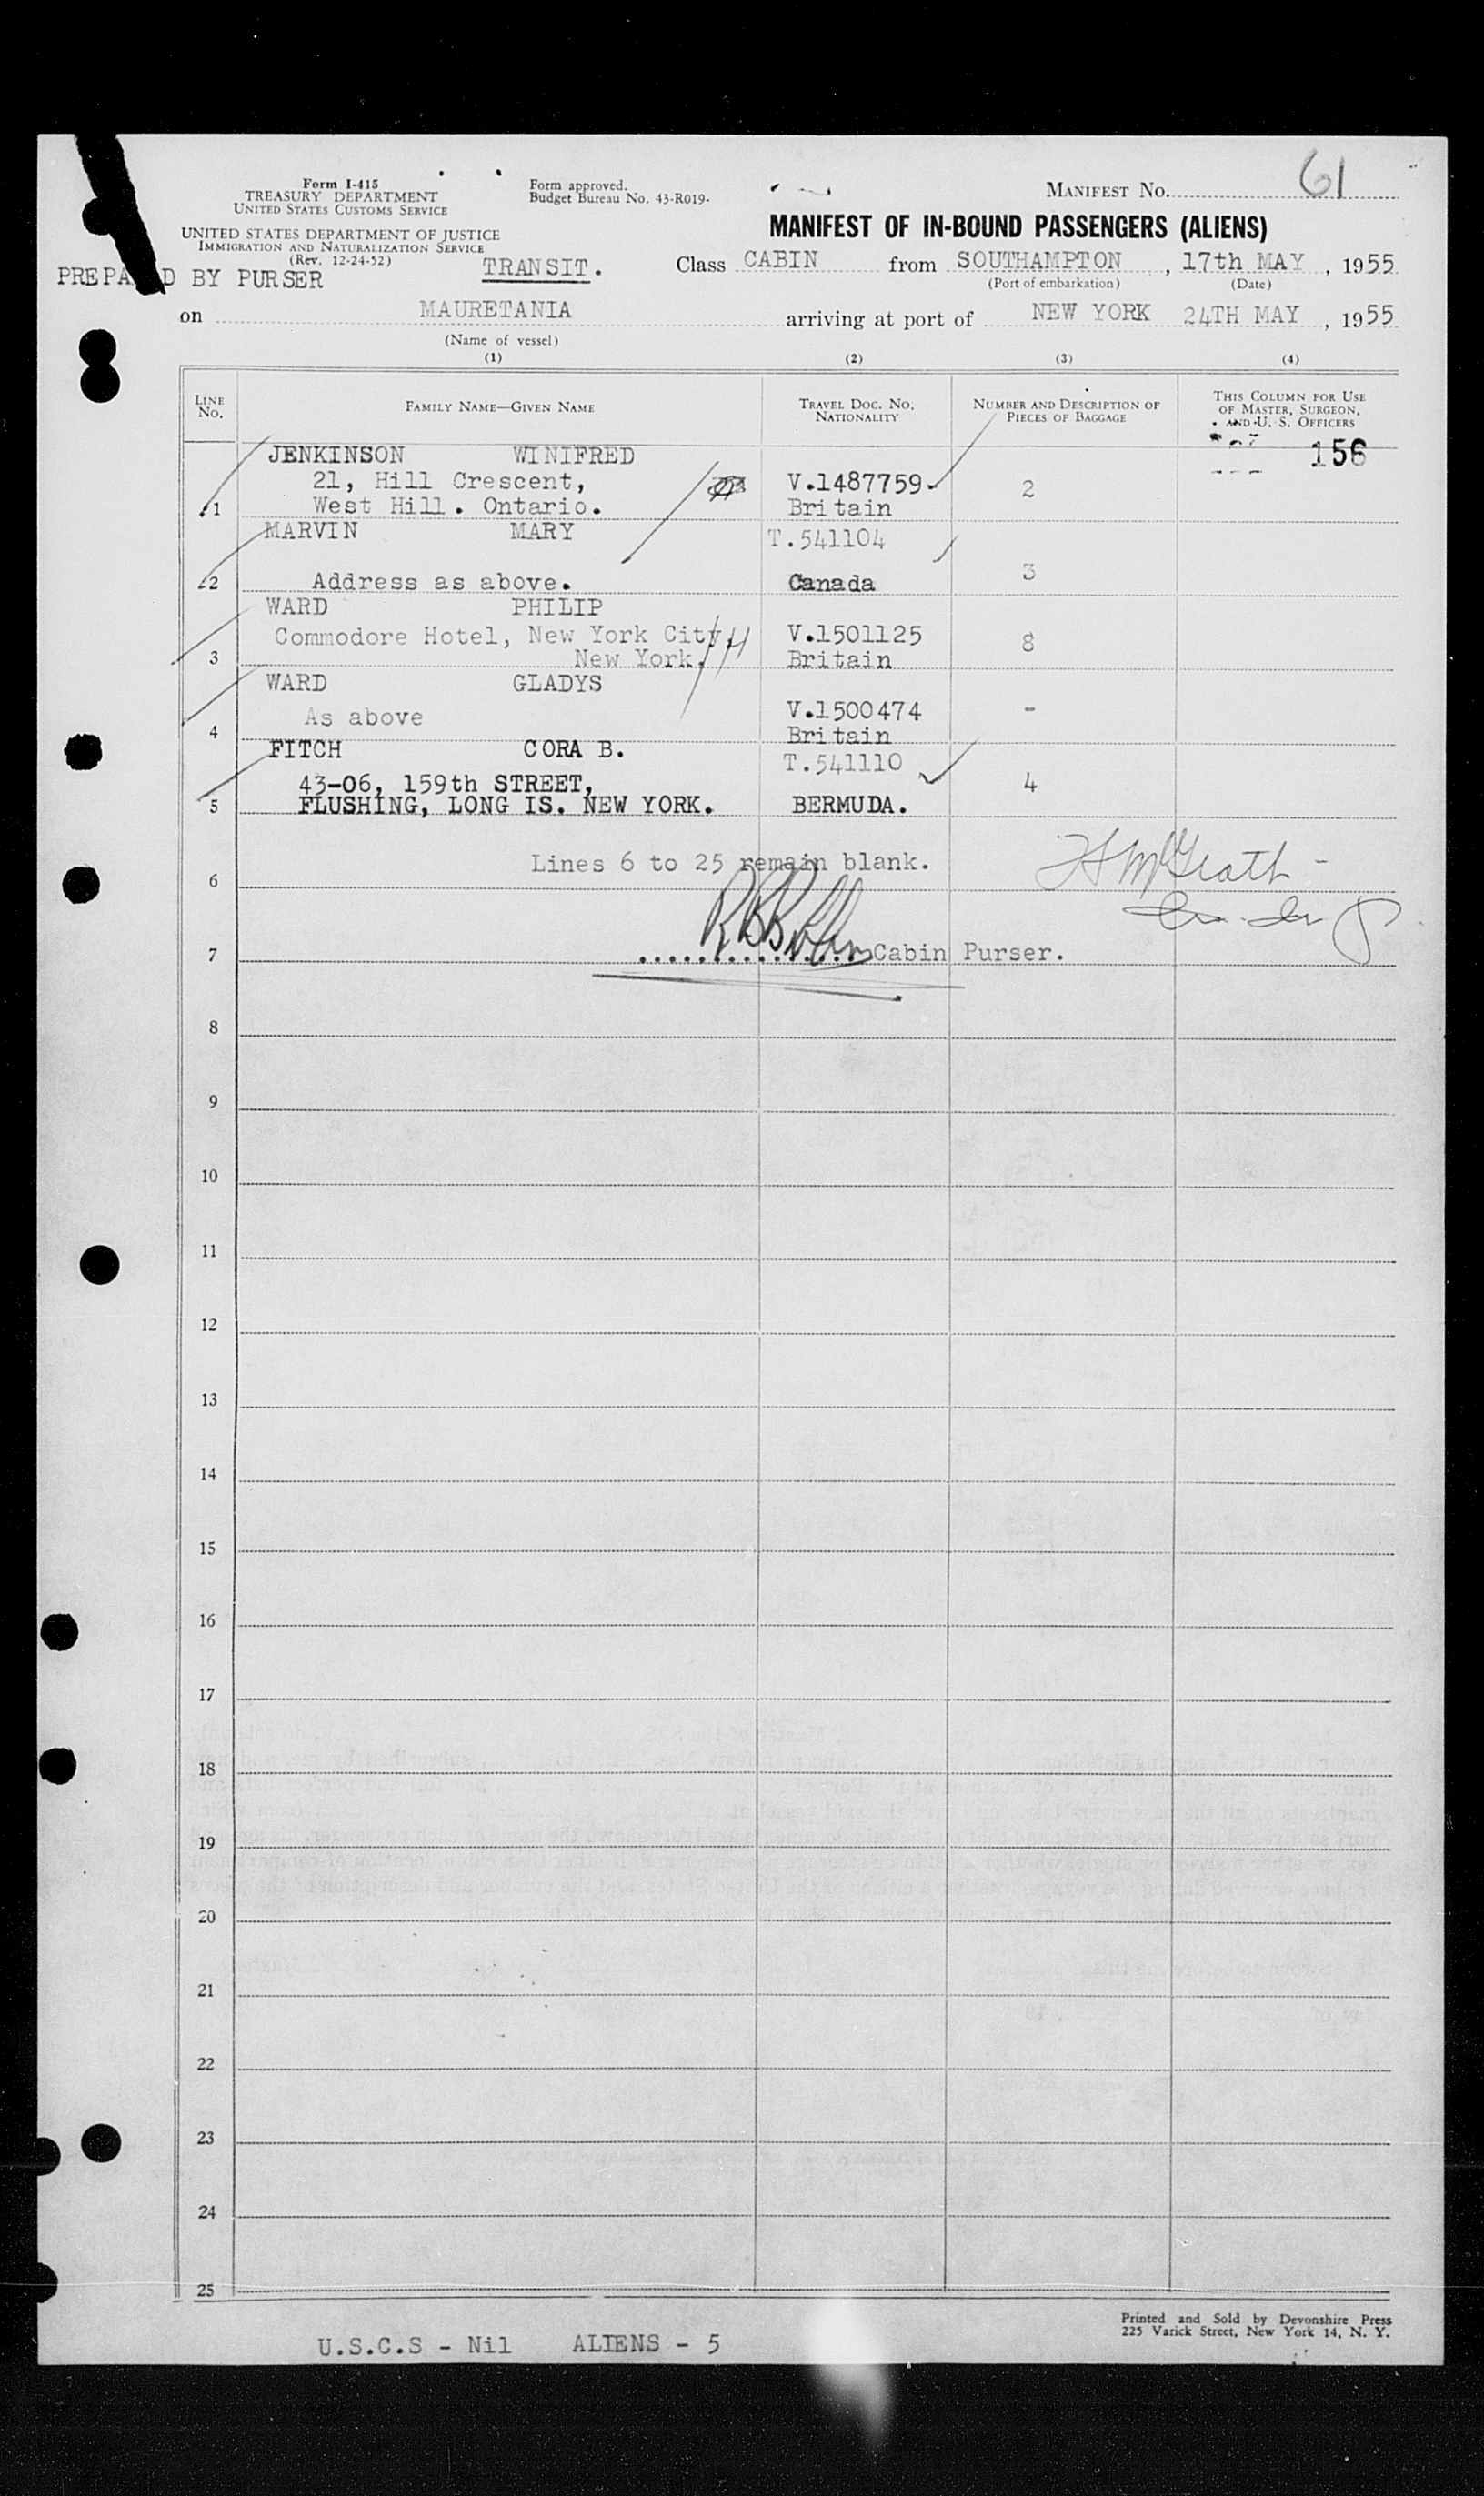 Form I-415
TREASURY DEPARTMENT
UNITED STATES CUSTOMS SERVICE
UNITED STATES DEPARTMENT OF JUSTICE
IMMIGRATION AND NATURALIZATION SERVICE
(Rev. 12-24-52)
PREPA D BY PURSER
Form approved.
Budget Bureau No. 43-R019-
TRANSIT.
MANIFEST NO. 61
MANIFEST OF IN-BOUND PASSENGERS (ALIENS)
Class CABIN from SOUTHAMPTON, 17th MAY, 1955
(Port of embarkation) (Date)
on MAURETANIA arriving at port of NEW YORK 24TH MAY, 1955
(Name of vessel)
(1) (2) (3) (4)
LINE NO. FAMILY NAME—GIVEN NAME TRAVEL DOC. NO. NATIONALITY NUMBER AND DESCRIPTION OF PIECES OF BAGGAGE THIS COLUMN FOR USE OF MASTER, SURGEON, AND U. S. OFFICERS
156
JENKINSON WINIFRED
21, Hill Crescent, V.1487759 2
1 West Hill. Ontario. Britain
MARVIN MARY T.541104
2 Address as above. Canada 3
WARD PHILIP
Commodore Hotel, New York City, V.1501125 8
3 New York. Britain
WARD GLADYS
As above V.1500474 -
4 Britain
FITCH CORA B. T.541110
43-06, 159th STREET, 4
5 FLUSHING, LONG IS. NEW YORK. BERMUDA.
6 Lines 6 to 25 remain blank.
7 Cabin Purser.
8
9
10
11
12
13
14
15
16
17
18
19
20
21
22
23
24
25
Printed and Sold by Devonshire Press
225 Varick Street, New York 14, N. Y.
U.S.C.S - Nil ALIENS - 5